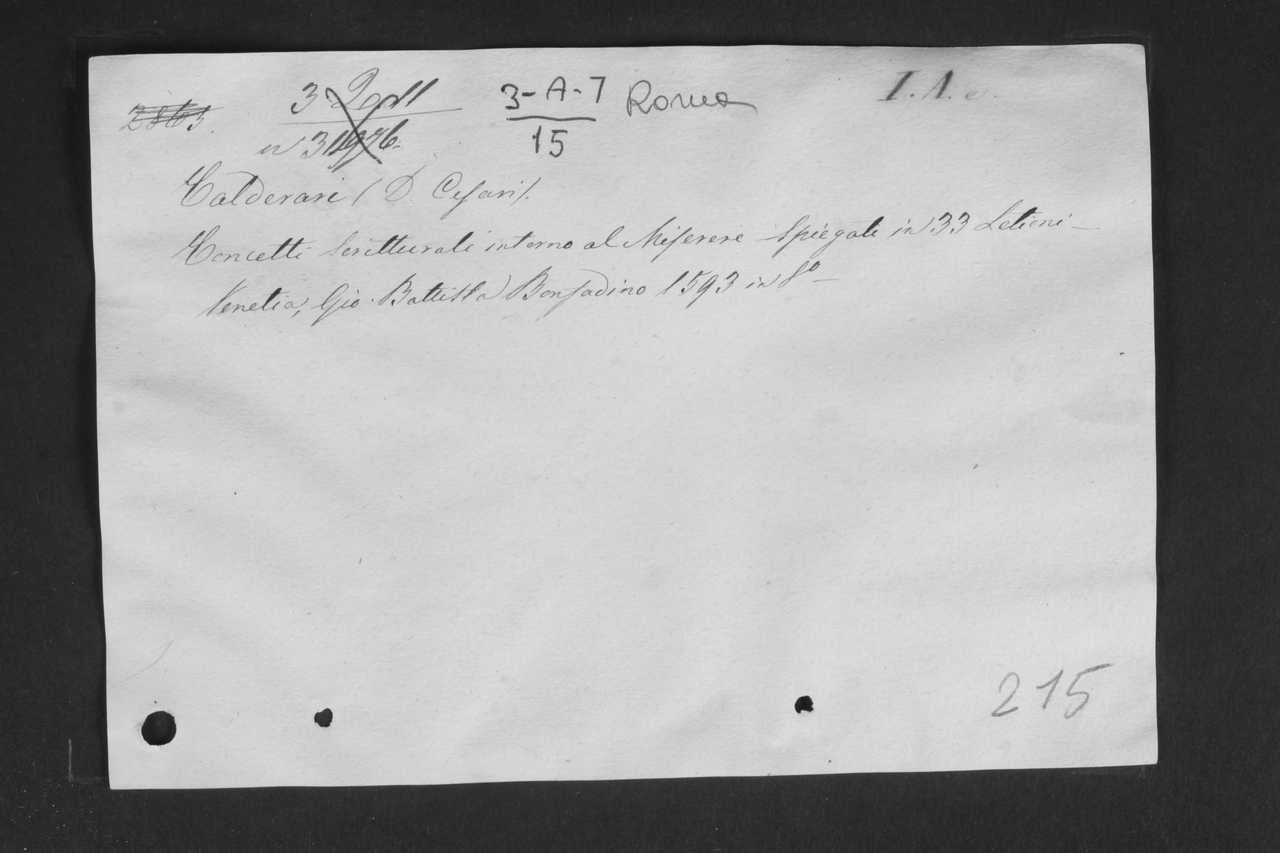 3-A-7 Roma
15
Calderari (D. Cesari).
Concetti Scritturali intorno al Miserere Spiegati in 33 Letioni -
Venetia, Gio. Battista Bonfadino 1593 in 8º -
215